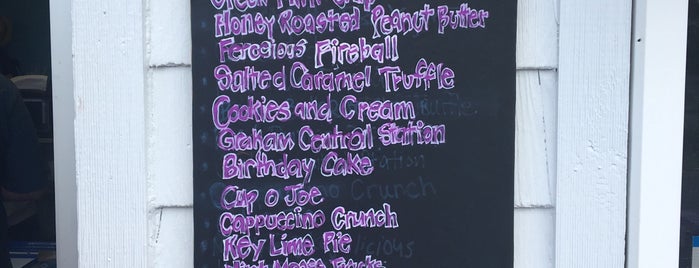 Honey Roasted Peanut Butter
Ferocious Fireball
Salted Caramel Truffle
Cookies and Cream
Graham Central Station
Birthday Cake
Cup o Joe
Cappuccino Crunch
Key Lime Pie
Moose